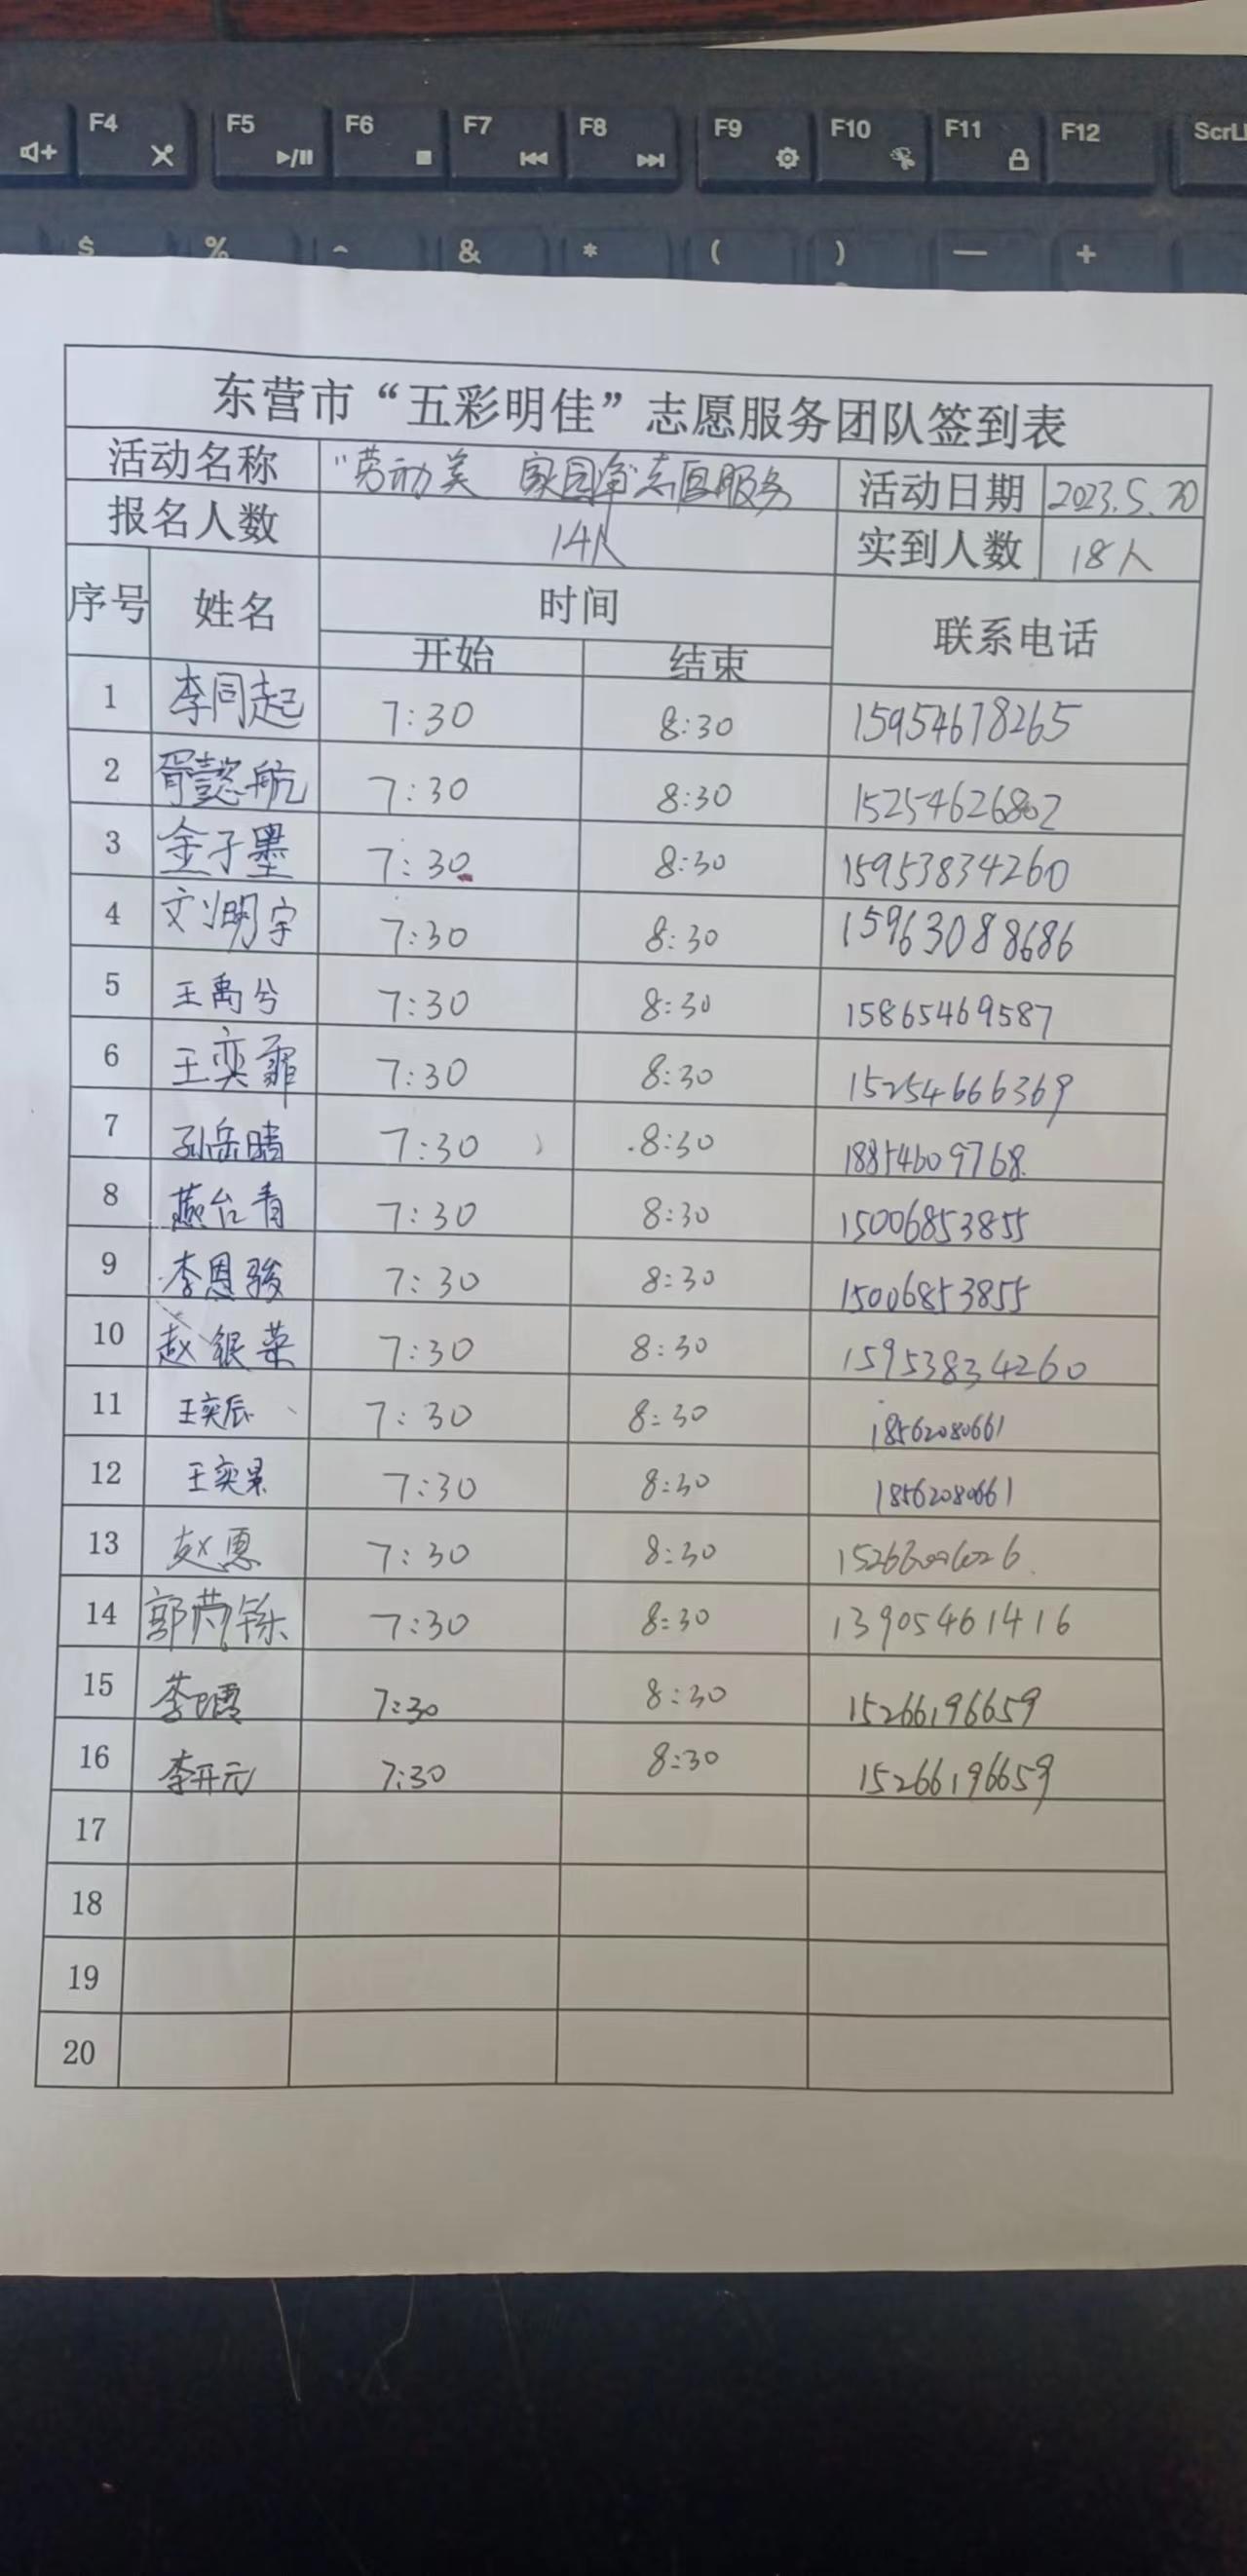 F4 F5 F6 F7 F8 F9 F10 F11 F12 ScrL
$ % ^ & * ( ) — +
东营市“五彩明佳”志愿服务团队签到表
活动名称 “劳动美 家园净”志愿服务 活动日期 2023.5.20
报名人数 14人 实到人数 18人
序号 姓名 时间 联系电话
开始 结束
1 李同起 7:30 8:30 15954678265
2 胥懿航 7:30 8:30 15254626802
3 金子墨 7:30 8:30 15953834260
4 刘明宇 7:30 8:30 15963088686
5 王禹兮 7:30 8:30 15865469587
6 王奕霏 7:30 8:30 15254666369
7 孙岳晴 7:30 8:30 18854609768
8 燕台青 7:30 8:30 15006853855
9 李恩骏 7:30 8:30 15006853855
10 赵银菜 7:30 8:30 15953834260
11 王奕辰 7:30 8:30 18562080661
12 王奕果 7:30 8:30 18562080661
13 赵恩 7:30 8:30
14 郭芮铄 7:30 8:30 13905461416
15 李 7:30 8:30 15266196659
16 李开元 7:30 8:30 15266196659
17
18
19
20